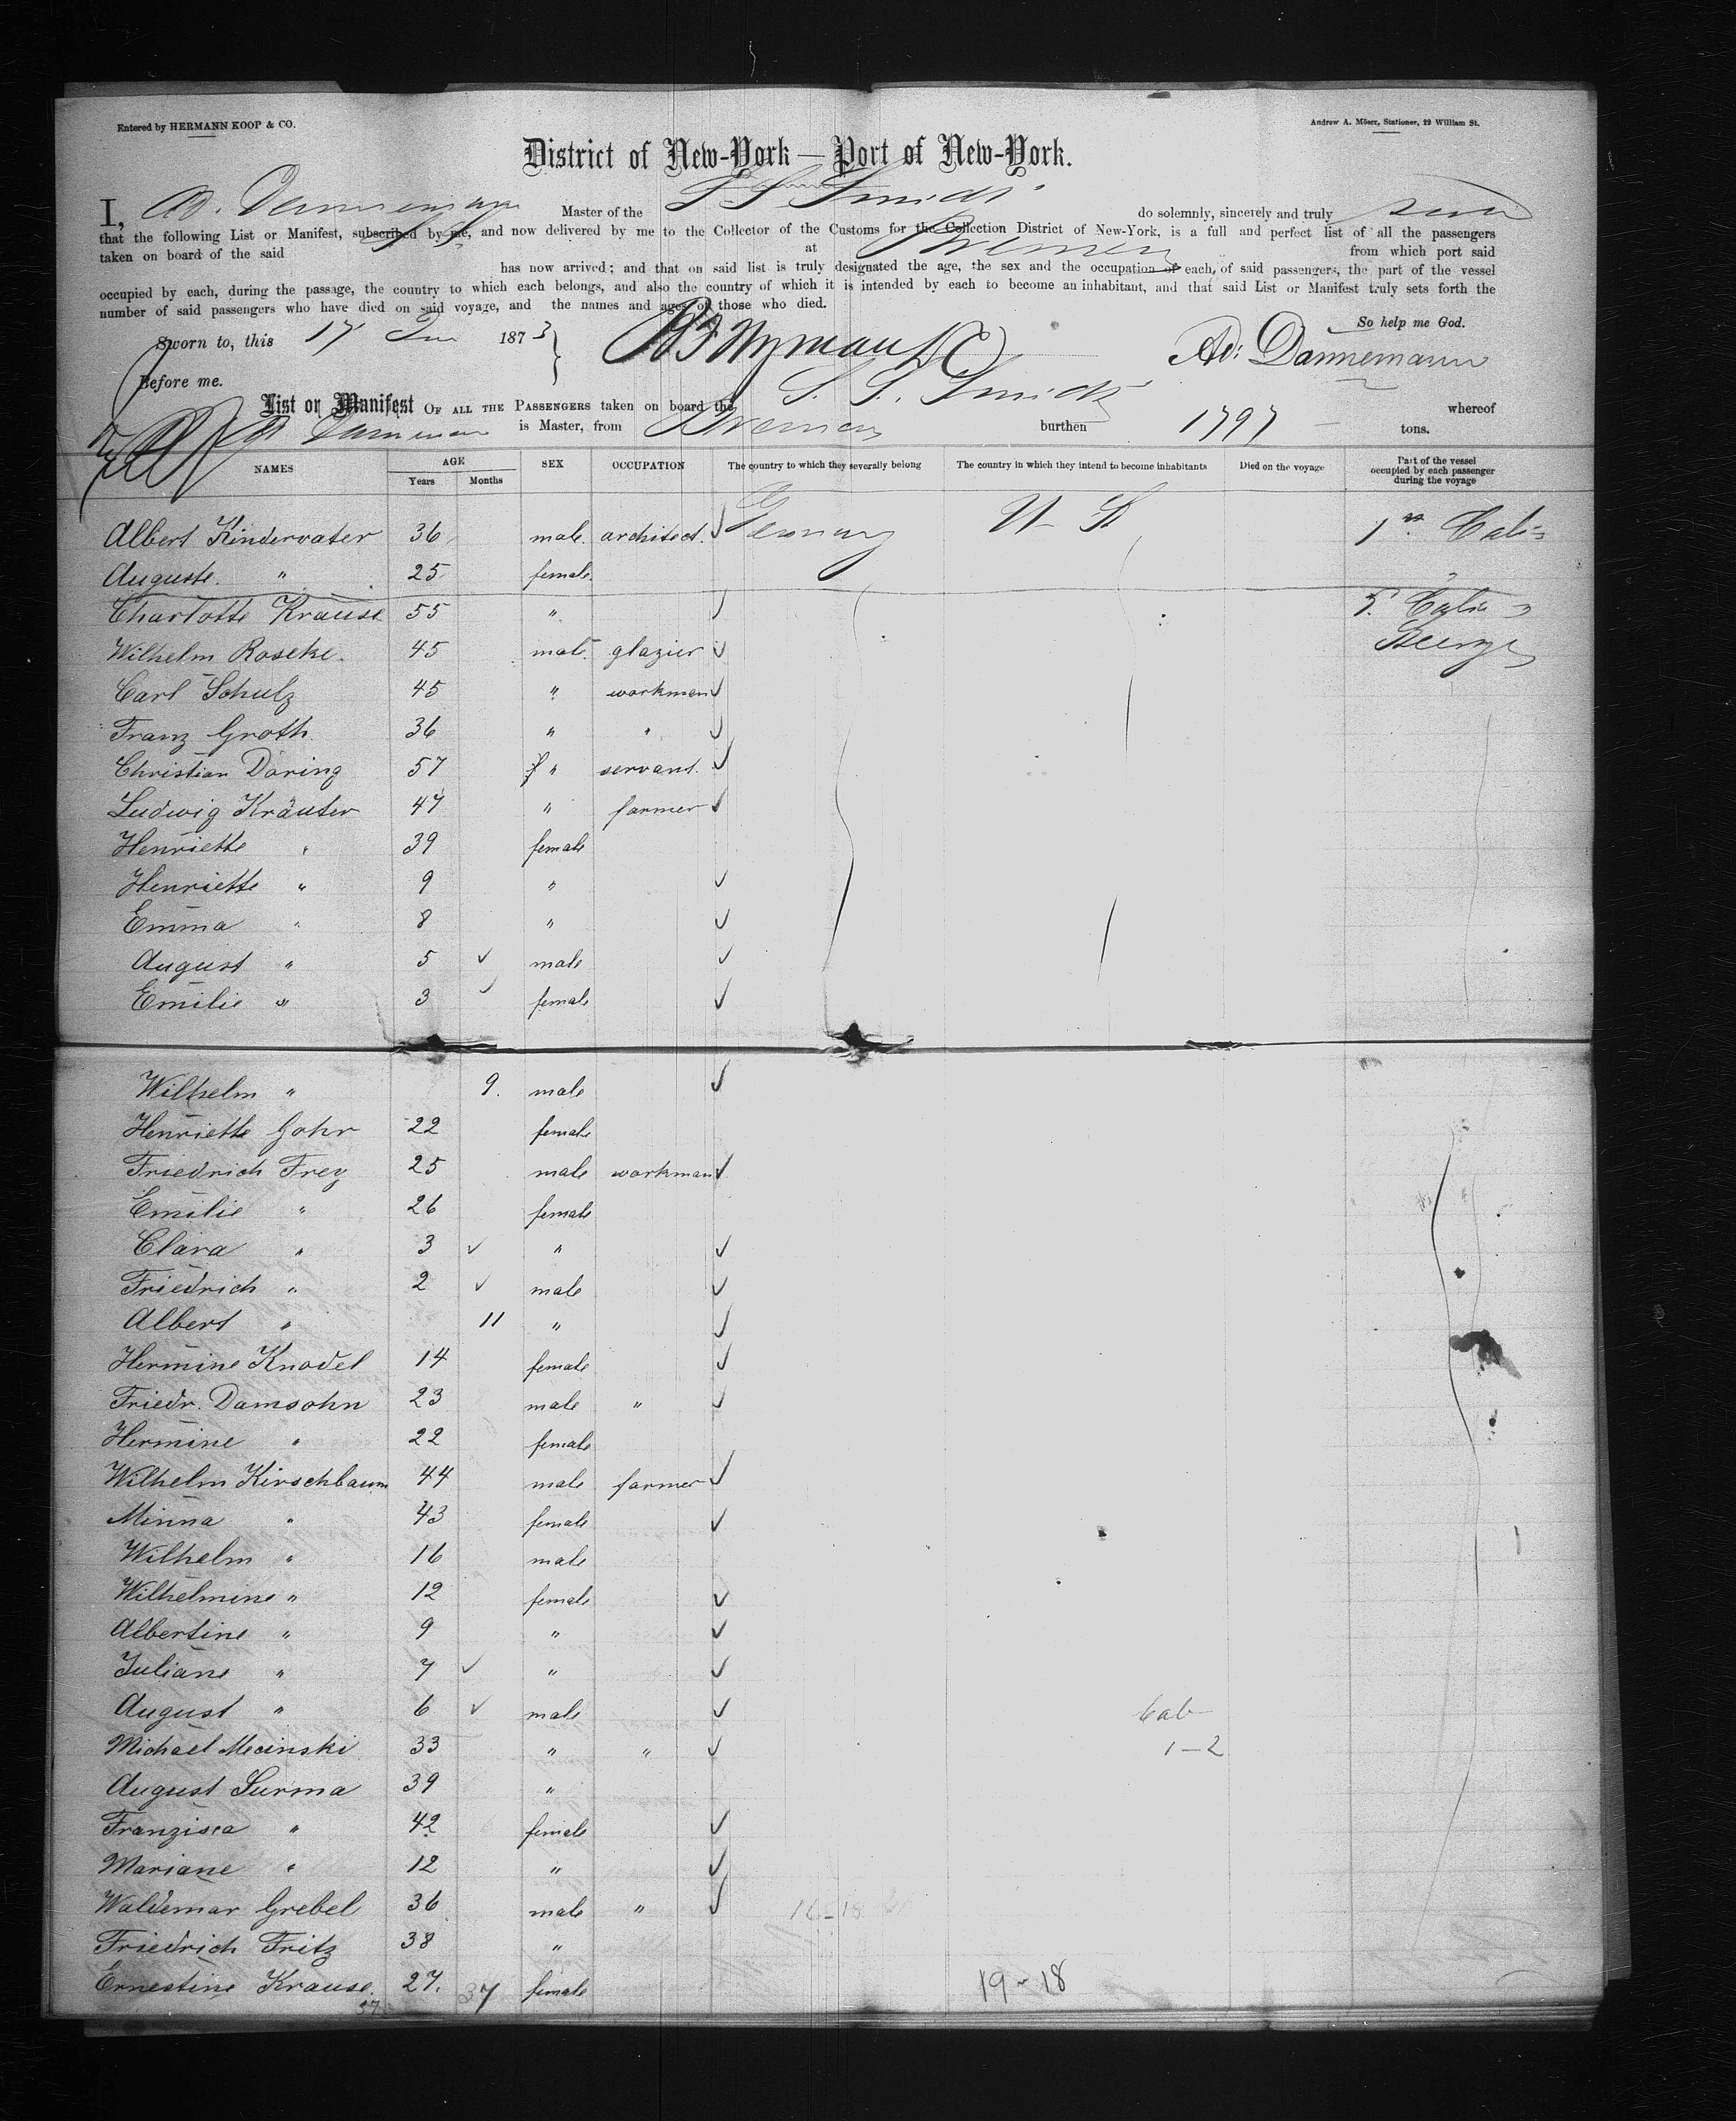 Entered by HERMANN KOOP & CO.
Andrew A. Möser, Stationer, 22 William St.
District of New-York — Port of New-York.
I, Ad. Dannemann Master of the S S Smidt do solemnly, sincerely and truly swear
that the following List or Manifest, subscribed by me, and now delivered by me to the Collector of the Customs for the Collection District of New-York, is a full and perfect list of all the passengers
taken on board of the said S S at Bremen from which port said
has now arrived; and that on said list is truly designated the age, the sex and the occupation of each, of said passengers, the part of the vessel
occupied by each, during the passage, the country to which each belongs, and also the country of which it is intended by each to become an inhabitant, and that said List or Manifest truly sets forth the
number of said passengers who have died on said voyage, and the names and ages of those who died.
So help me God.
Sworn to, this 17 1873
Ad: Dannemann
Before me.
List or Manifest OF ALL THE PASSENGERS taken on board the S. S. Smidt whereof
Dannemann is Master, from Bremen burthen 1797 tons.
NAMES AGE Years Months SEX OCCUPATION The country to which they severally belong The country in which they intend to become inhabitants Died on the voyage Part of the vessel occupied by each passenger during the voyage
Albert Kindervater 36 male. architect. Germany U St 1st Cabin
Auguste. " 25 female.
Charlotte Krause 55 "
Wilhelm Roseke. 45 male. glazier Steerage
Carl Schulz 45 " workman
Franz Groth. 36 " "
Christian Döring 57 f " servant.
Ludwig Kräuter 47 " farmer
Henriette " 39 female
Henriette " 9 "
Emma " 8 "
August " 5 male
Emilie " 3 female
Wilhelm " 9. male
Henriette Gohr 22 female
Friedrich Frey 25 male workman
Emilie " 26 female
Clara " 3 "
Friedrich " 2 male
Albert " 11 "
Hermine Knodel 14 female
Friedr. Damsohn 23 male "
Hermine " 22 female
Wilhelm Kirschbaum 44 male farmer
Minna " 43 female
Wilhelm " 16 male
Wilhelmine " 12 female
Albertine " 9 "
Juliane " 7 "
August " 6 male Cab
Michael Mecinski 33 " " 1–2
August Surma 39 "
Franzisca " 42 female
Mariane " 12 "
Waldemar Grebel 36 male "
Friedrich Fritz 38 "
Ernestine Krause. 27. 37 female 19–18
37